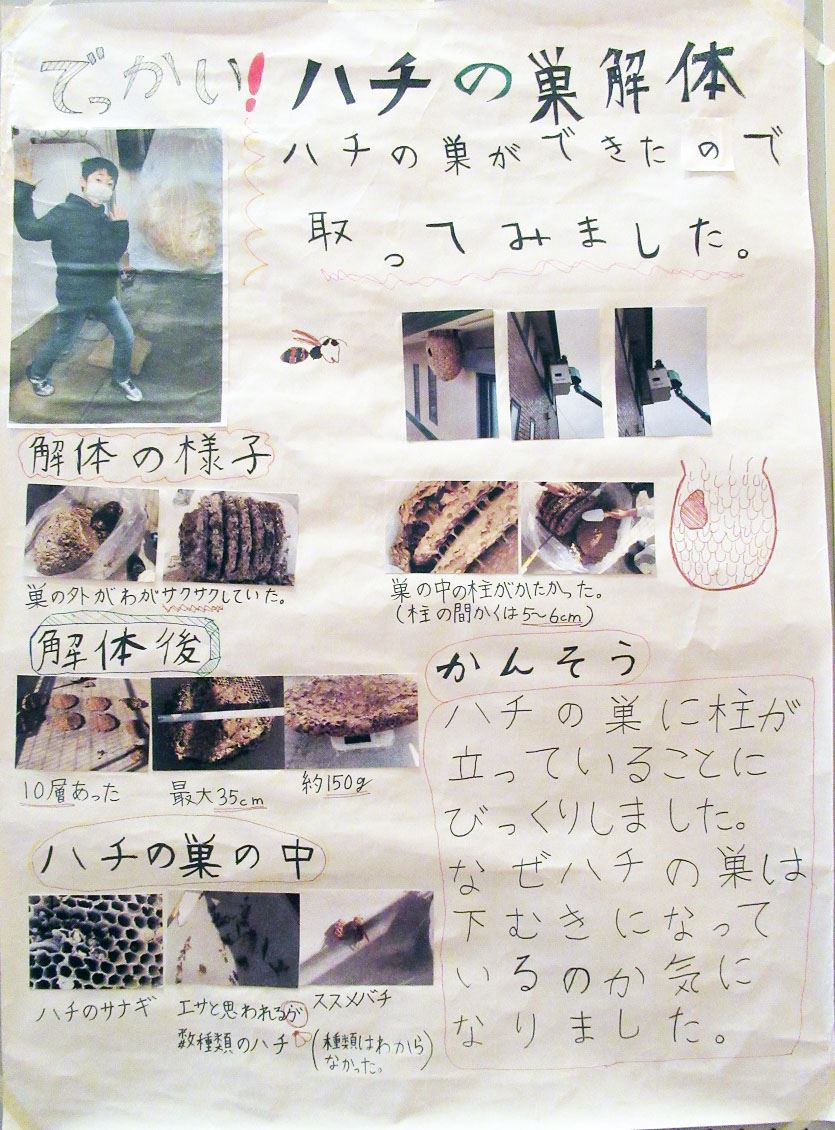 でっかい!ハチの巣解体
ハチの巣ができたので
取ってみました。
解体の様子
巣の外がわがサクサクしていた。
巣の中の柱がかたかった。
(柱の間かくは5〜6cm)
解体後
10層あった
最大35cm
約150g
ハチの巣の中
ハチのサナギ
エサと思われるが
数種類のハチ
スズメバチ
(種類はわから
なかった。)
かんそう
ハチの巣に柱が
立っていることに
びっくりしました。
なぜハチの巣は
下むきになって
いるのか気に
なりました。